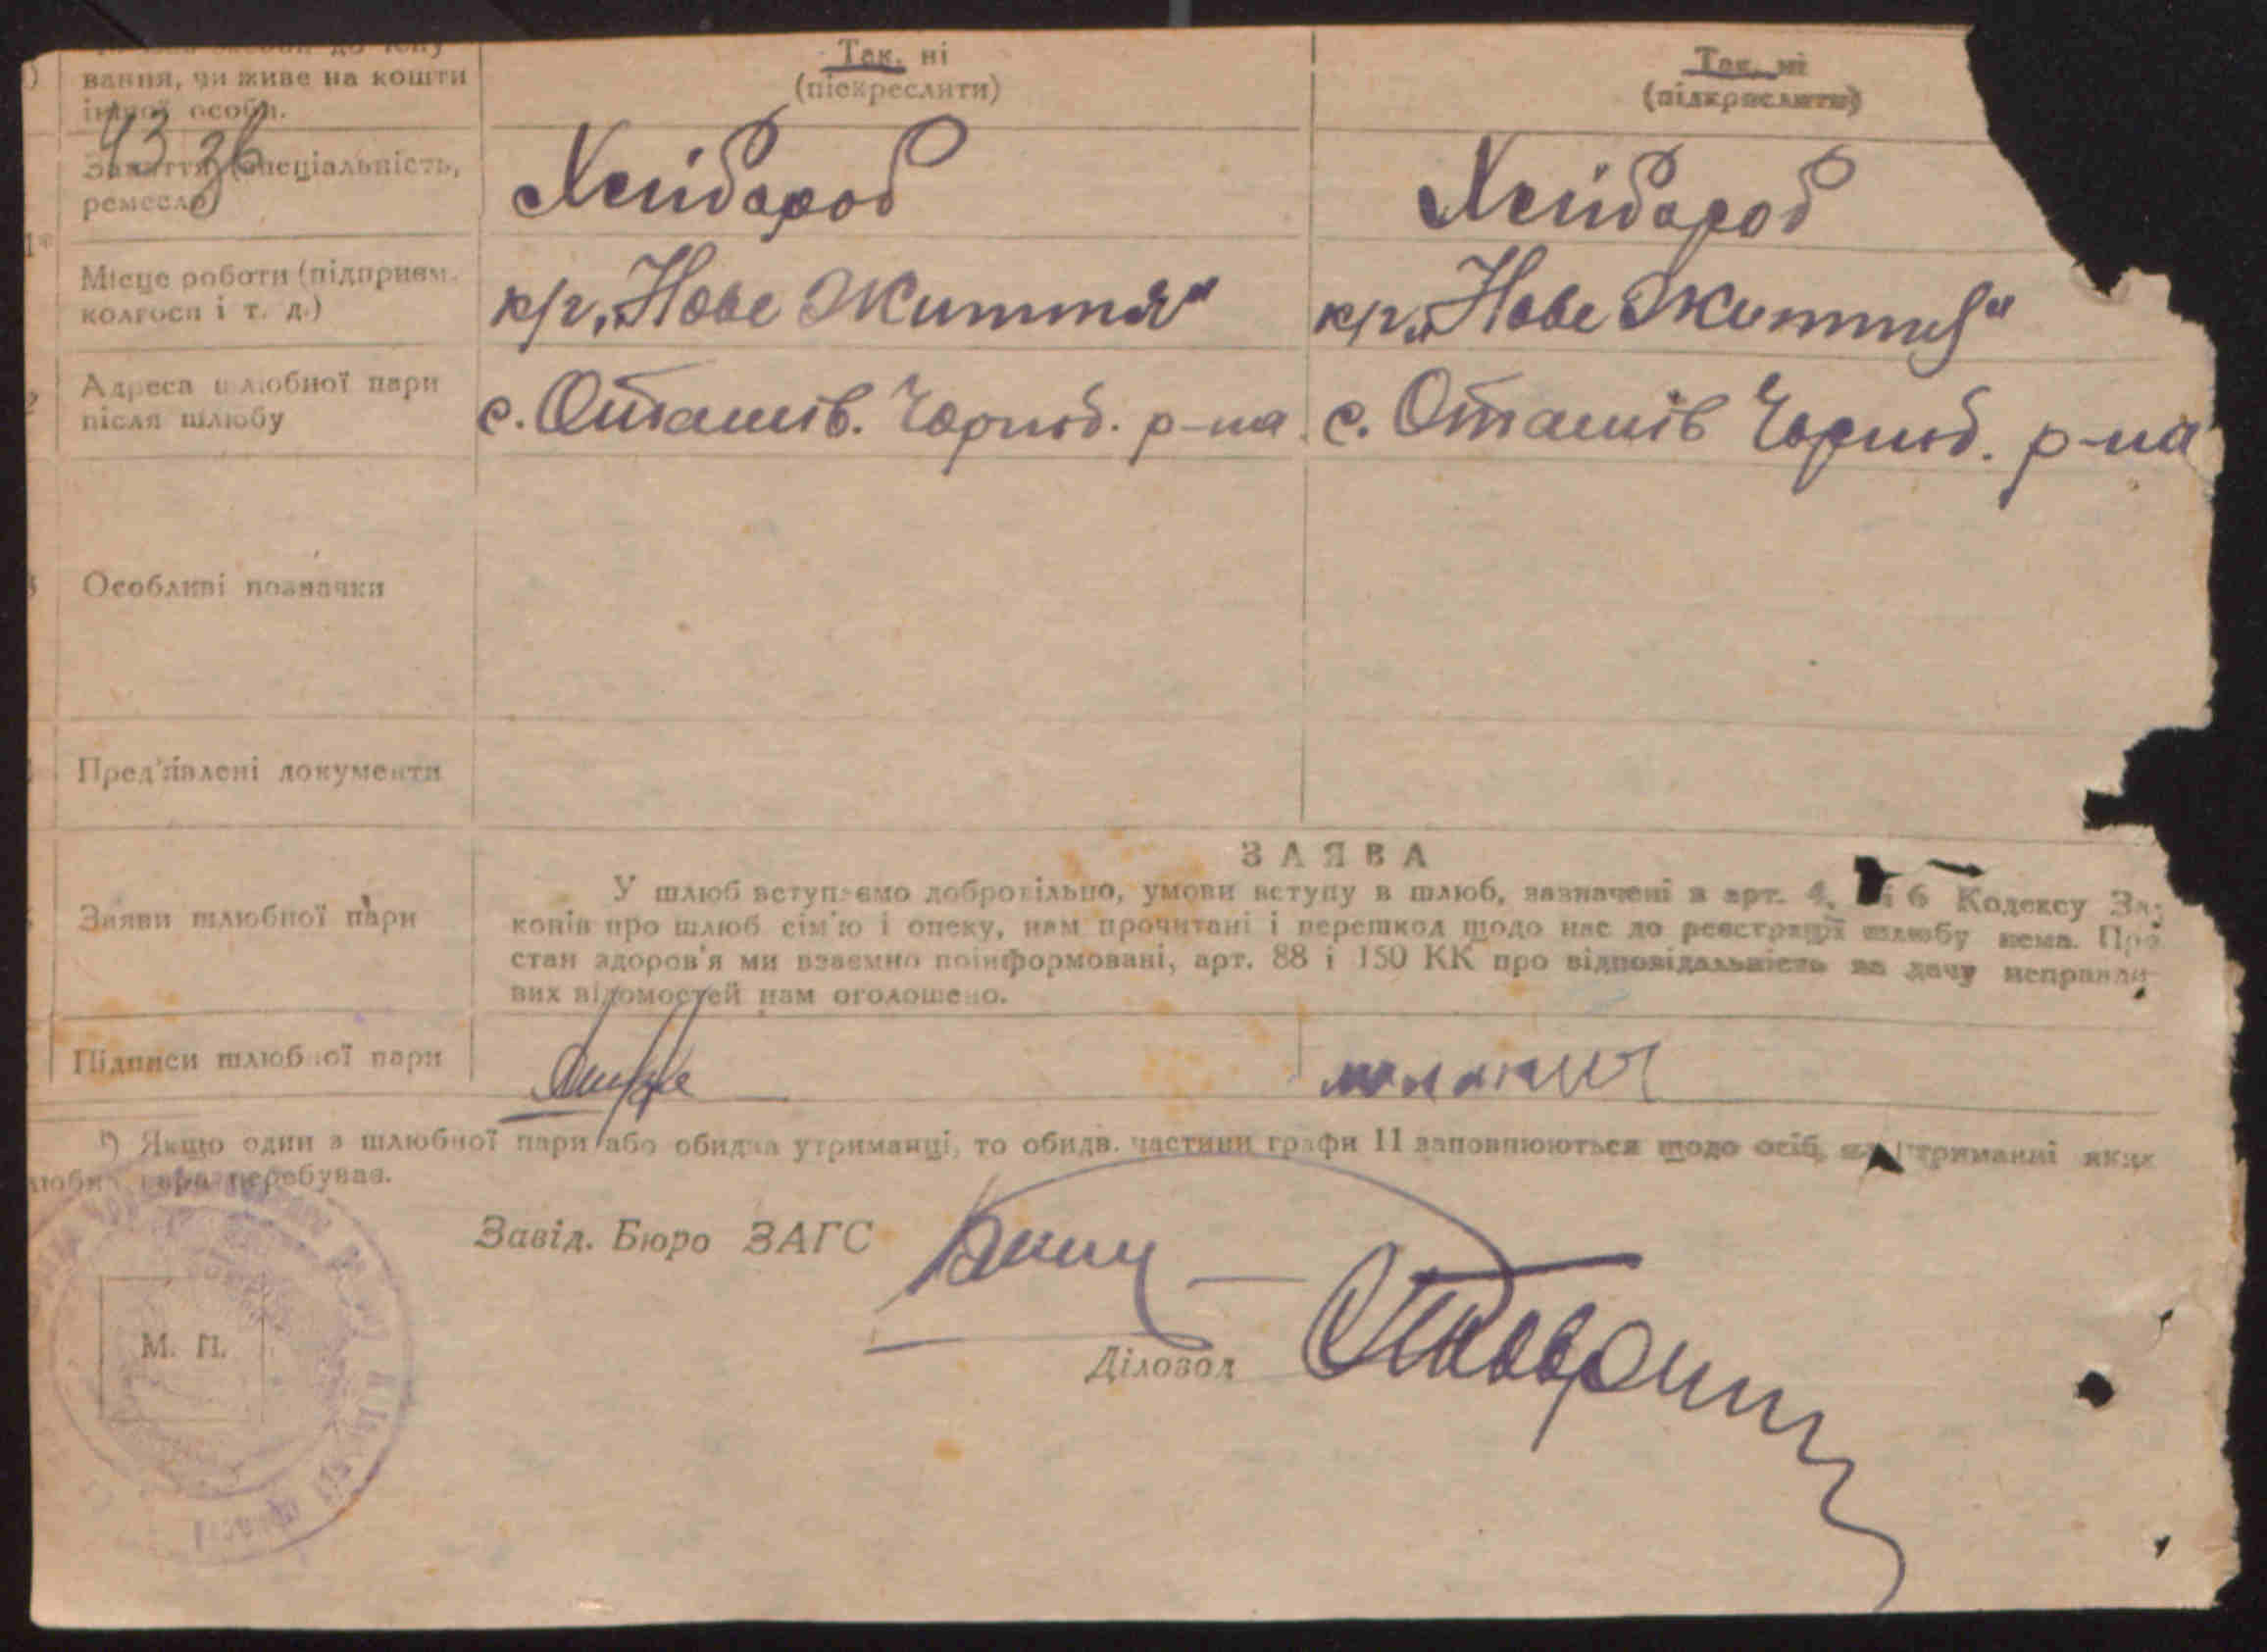 вання, чи живе на кошти
іншої особи.
Так, ні
(піскреслити)
Так, ні
(підкреслити)
43 36
Заняття (спеціальність,
ремесло)
Хлібороб
Хлібороб
Місце роботи (підприєм.
колгосп і т. д.)
к/г „Нове Життя"
к/г „Нове Життя"
Адреса шлюбної пари
після шлюбу
с. Оташів. Чорноб. р-на
с. Оташів Чорноб. р-на
Особливі позначки
Пред'явлені документи
ЗАЯВА
Заяви шлюбної пари
У шлюб вступаємо добровільно, умови вступу в шлюб, зазначені в арт. 4, і 6 Кодексу За-
конів про шлюб сім'ю і опеку, нам прочитані і перешкод щодо нас до реєстрації шлюбу нема. Про
стан здоров'я ми взаємно поінформовані, арт. 88 і 150 КК про відповідальність за дачу неправди-
вих відомостей нам оголошено.
Підписи шлюбної пари
*) Якщо один з шлюбної пари або обидва утриманці, то обидв. частини графи 11 заповнюються щодо осіб, на утриманні яких
шлюбна пара перебуває.
Завід. Бюро ЗАГС
М. П.
Діловод